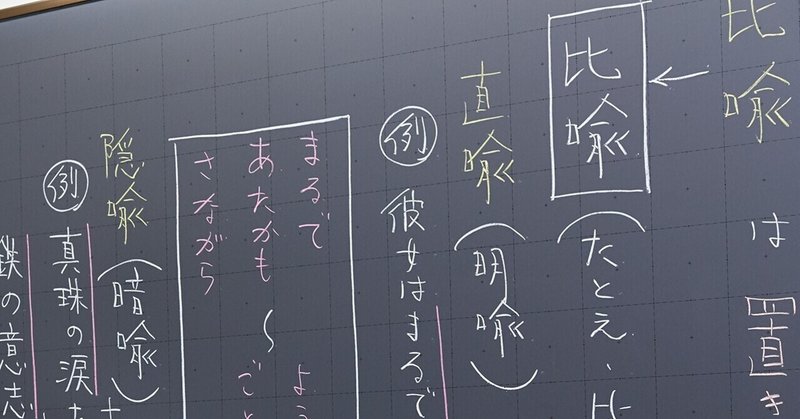 比喩
は置き
比喩
（たとえ、比
直喩
（明喩）
例
彼女はまるで
まるで
あたかも 〜 よう
さながら ごと
隠喩
（暗喩）
例
真珠の涙
鉄の意志